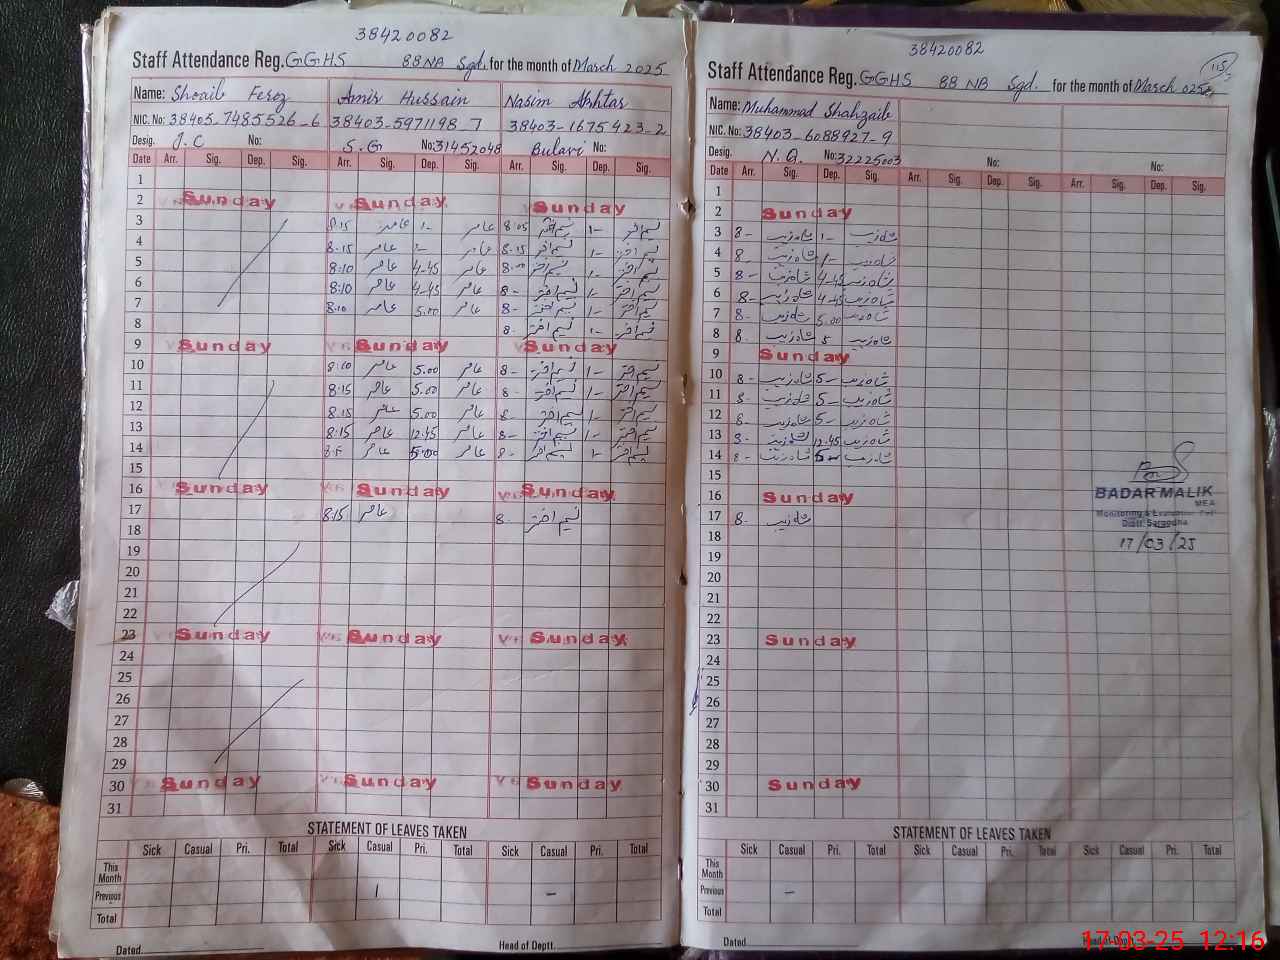 38420082
Staff Attendance Reg. GGHS 88 NB Sgd. for the month of March 2025
Name: Shoaib Feroz Amir Hussain Nasim Akhtar
NIC. No: 38405-7485526-6 38403-5971198-7 38403-1675423-2
Desig. J.C No: S.G No: 31452048 Bulavi No:
Date Arr. Sig. Dep. Sig. Arr. Sig. Dep. Sig. Arr. Sig. Dep. Sig.
1
2 Sunday Sunday Sunday
3 8.15 عامر 1- عامر 8.05 نسیم اختر 1- نسیم اختر
4 8.15 عامر 1- عامر 8.15 نسیم اختر 1- نسیم اختر
5 8:10 عامر 4-45 عامر 8.00 نسیم اختر 1- نسیم اختر
6 8:10 عامر 4-45 عامر 8- نسیم اختر 1- نسیم اختر
7 8:10 عامر 5.00 عامر 8- نسیم اختر 1- نسیم اختر
8 8- نسیم اختر 1- نسیم اختر
9 Sunday Sunday Sunday
10 8:10 عامر 5.00 عامر 8- نسیم اختر 1- نسیم اختر
11 8:15 عامر 5.00 عامر 8- نسیم اختر 1- نسیم اختر
12 8.15 عامر 5.00 عامر 8- نسیم اختر 1- نسیم اختر
13 8.15 عامر 12.45 عامر 8- نسیم اختر 1- نسیم اختر
14 عامر 5.00 عامر 8- نسیم اختر 1- نسیم اختر
15
16 Sunday Sunday Sunday
17 8.15 عامر 8- نسیم اختر
18
19
20
21
22
23 Sunday Sunday Sunday
24
25
26
27
28
29
30 Sunday Sunday Sunday
31
STATEMENT OF LEAVES TAKEN
Sick Casual Pri. Total Sick Casual Pri. Total Sick Casual Pri. Total
This Month
Previous 1 -
Total
Dated Head of Deptt.
38420082
115
Staff Attendance Reg. GGHS 88 NB Sgd. for the month of March 025
Name: Muhammad Shahzaib
NIC. No: 38403-6088927-9
Desig. N.Q. No: 32225003 No: No:
Date Arr. Sig. Dep. Sig. Arr. Sig. Dep. Sig. Arr. Sig. Dep. Sig.
1
2 Sunday
3 8- شاہ زیب 1- شاہ زیب
4 8 شاہ زیب 1- شاہ زیب
5 8- شاہ زیب 4-45 شاہ زیب
6 8- شاہ زیب 4-45 شاہ زیب
7 8- شاہ زیب 5.00 شاہ زیب
8 8. شاہ زیب 5 شاہ زیب
9 Sunday
10 8- شاہ زیب 5- شاہ زیب
11 8- شاہ زیب 5- شاہ زیب
12 8- شاہ زیب 5- شاہ زیب
13 8- شاہ زیب 12.45 شاہ زیب
14 8- شاہ زیب 5- شاہ زیب
15
16 Sunday
17 8- شاہ زیب
18
19
20
21
22
23 Sunday
24
25
26
27
28
29
30 Sunday
31
BADAR MALIK
MEA
Monitoring & Evaluation
Distt. Sargodha
17/03/25
STATEMENT OF LEAVES TAKEN
Sick Casual Pri. Total Sick Casual Pri. Total Sick Casual Pri. Total
This Month
Previous -
Total
Dated Head of Deptt.
17-03-25 12:16